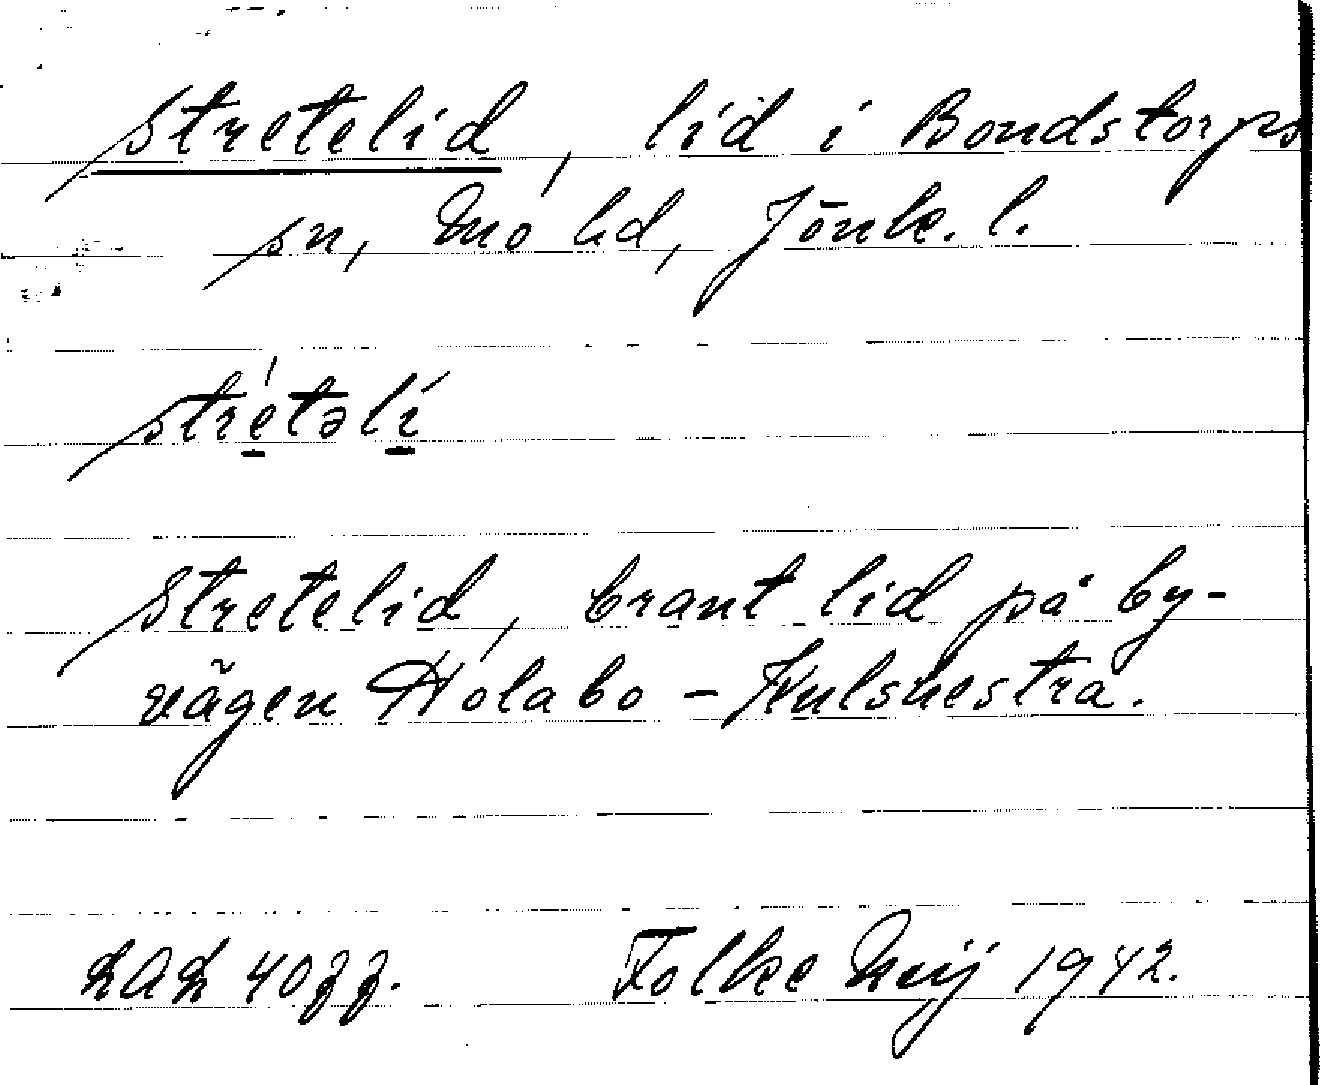 Stretelid, lid i Bondstorps
sn, Mo hd, Jönk. l.
strétəlí
Stretelid, brant lid på by-
vägen Holabo - Hulsnestra.
LAL 4033. Folke Meij 1942.